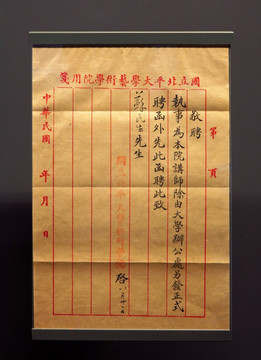 國立北平大學藝術學院用箋
第 頁
敬聘
執事為本院講師除由大學辦公處另發正式
聘函外先此函聘此致
蘇民生先生
啓 八月
中華民國 年 月 日